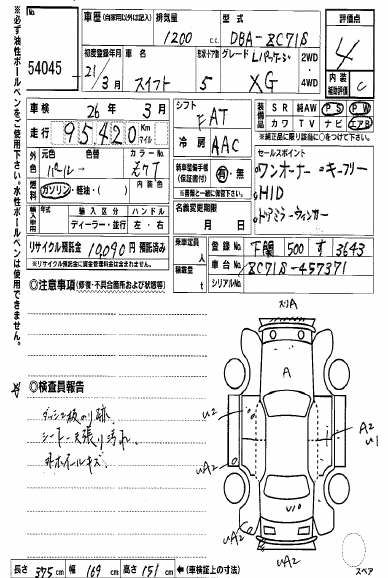 ※必ず油性ボールペンをご使用下さい・水性ボールペンは使用できません。
No.
54045
車歴 (自家用以外は記入) 排気量 型式
1200 c.c. DBA-ZC71S
初度登録年月 車名 形状 ドア数 グレード Lパッケージ 2WD
21/3月 スイフト 5 XG 4WD
評価点
4
内装
補助評価 C
車検 26年 3月
走行 95420 Km マイル
外色 元色 色替 カラーNo.
パール Z7T
燃料 ガソリン・軽油・( ) 内装色
輸入車用 輸入区分 ハンドル
ディーラー・並行 左・右
リサイクル預託金 10,090円 預託済み
※リサイクル預託金に資金管理料金は含まれません。
シフト
FAT
冷房 AAC
新車整備手帳(保証書付) 有・無
※書類と一緒に保管下さい。
名義変更期限
月 日
装備品 SR 純AW PS PW
カワ TV ナビ エアB
※純正品に限り該当品に○をつけて下さい。
セールスポイント
ワンオーナー キーフリー
HID
ドアミラーウィンカー
乗車定員 人
積載量 t
登録No. 下関 500 す 3643
車台No. ZC71S-457371
シリアルNo.
◎注意事項 (修復・不具合箇所および状態等)
◎検査員報告
ダッシュ板のり跡
シート天張り汚れ
外ホイールキズ
スリA
A
U2
UA2
UA2
U10
UA2
UA2
スペア
長さ 375 cm 幅 169 cm 高さ 151 cm ←(車検証上の寸法)